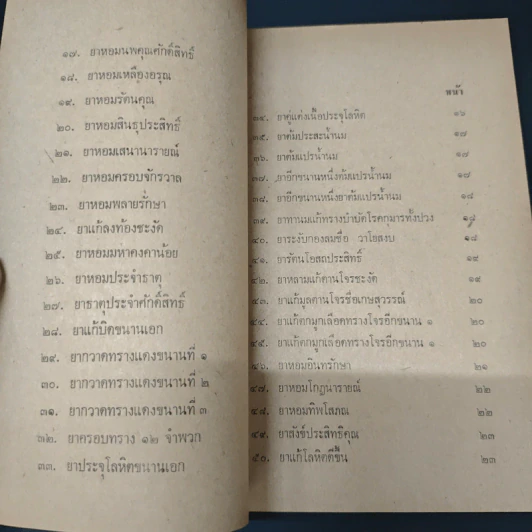 ๑๗. ยาหอมนพคุณศักดิ์สิทธิ์
๑๘. ยาหอมเหลืองอรุณ
๑๙. ยาหอมรัตนคุณ
๒๐. ยาหอมสินธุประสิทธิ์
๒๑. ยาหอมเสนานารายณ์
๒๒. ยาหอมครอบจักรวาล
๒๓. ยาหอมพลายรักษา
๒๔. ยาแก้ลงท้องชะงัด
๒๕. ยาหอมมหาคงคาน้อย
๒๖. ยาหอมประจำธาตุ
๒๗. ยาธาตุประจำศักดิ์สิทธิ์
๒๘. ยาแก้บิดขนานเอก
๒๙. ยากวาดทรางแดงขนานที่ ๑
๓๐. ยากวาดทรางแดงขนานที่ ๒
๓๑. ยากวาดทรางแดงขนานที่ ๓
๓๒. ยาครอบทราง ๑๒ จำพวก
๓๓. ยาประจุโลหิตขนานเอก
หน้า
๓๔. ยาคู่แค่งเนื้อประจุโลหิต ๑๖
๓๕. ยาต้มประสะน้ำนม ๑๗
๓๖. ยาต้มแปรน้ำนม ๑๗
๓๗. ยาอีกขนานหนึ่งต้มแปรน้ำนม ๑๘
๓๘. ยาอีกขนานหนึ่งยาต้มแปรน้ำนม ๑๘
๓๙. ยาทานมแก้ทรางบำบัดโรคกุมารทั้งปวง ๑๘
๔๐. ยาระงับกองลมชื่อ วาโยสงบ ๑๘
๔๑. ยารัตนโอสถประสิทธิ์ ๑๙
๔๒. ยาหลามแก้ตานโจรชะงัด ๑๙
๔๓. ยาแก้มูลตานโจรชื่อเกษสุวรรณ์ ๒๐
๔๔. ยาแก้ตกมูกเลือดทรางโจรอีกขนาน ๑ ๒๐
๔๕. ยาแก้ตกมูกเลือดทรางโจรอีกขนาน ๑ ๒๐
๔๖. ยาหอมอินทรักษา ๒๑
๔๗. ยาหอมโกฏนารายณ์ ๒๒
๔๘. ยาหอมทิพโสภณ ๒๒
๔๙. ยาสังข์ประสิทธิคุณ ๒๓
๕๐. ยาแก้โลหิตตีขึ้น ๒๓